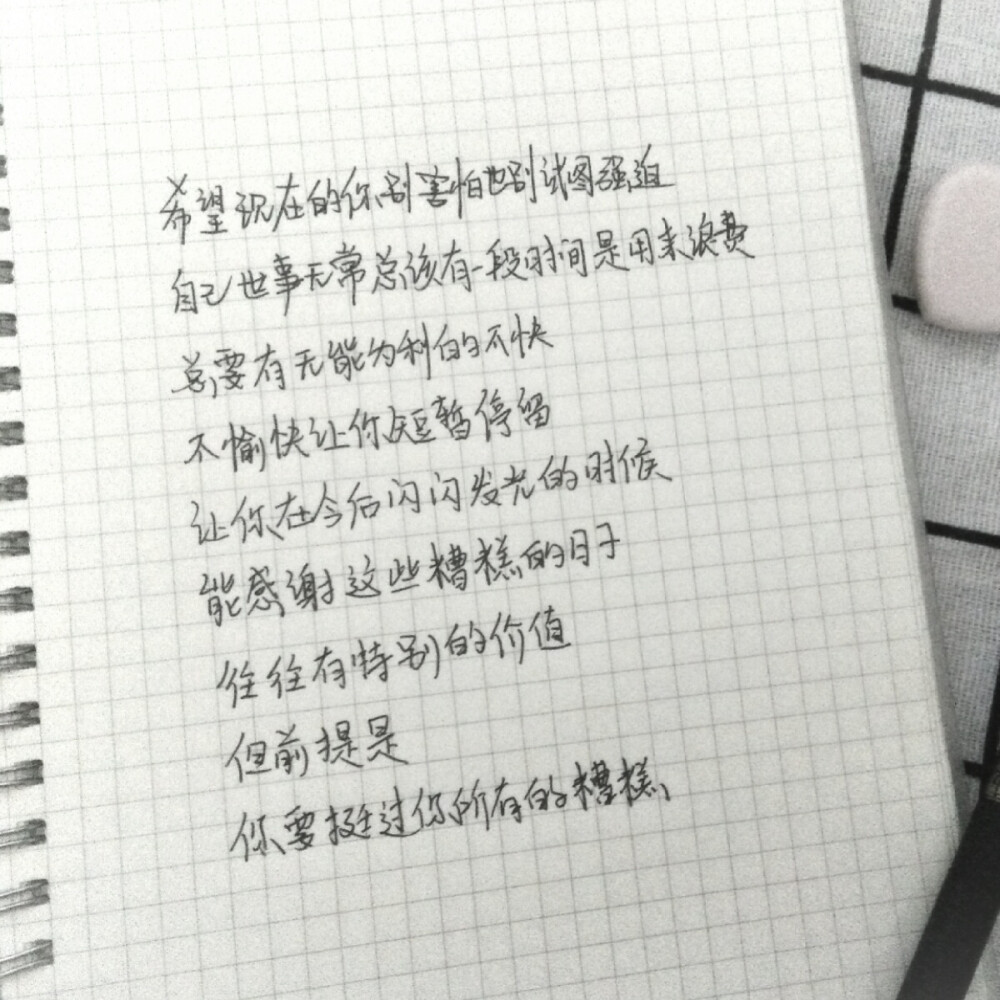 希望现在的你别害怕也别试图强迫
自己世事无常总该有一段时间是用来浪费
总要有无能为利的不快
不愉快让你短暂停留
让你在今后闪闪发光的时候
能感谢这些糟糕的日子
往往有特别的价值
但前提是
你要挺过你所有的糟糕、